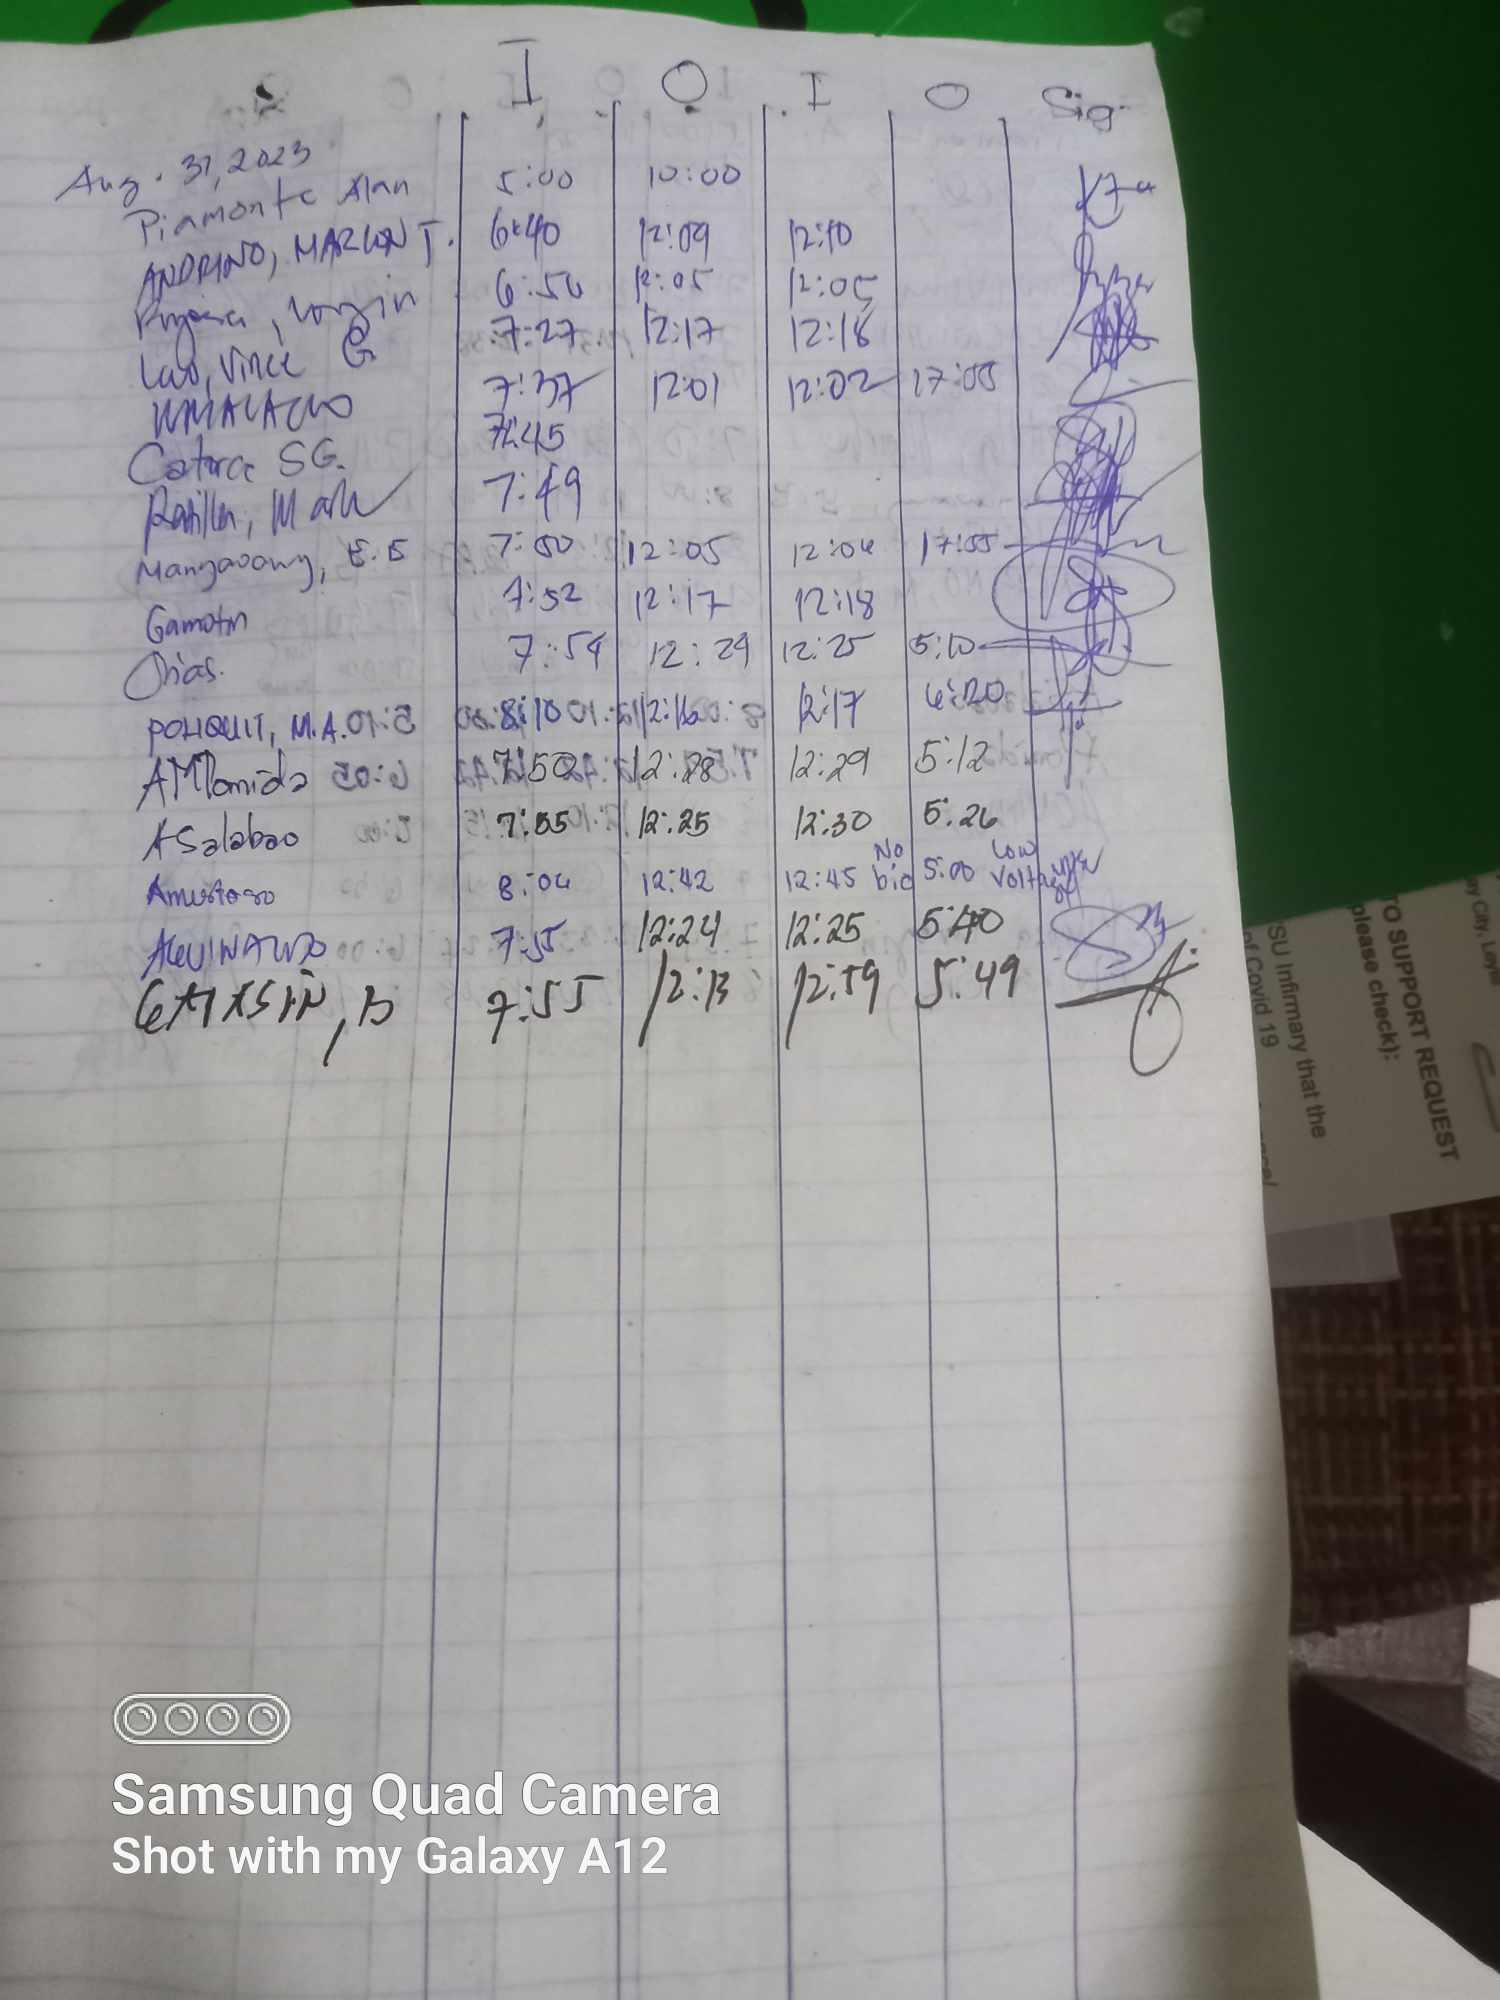 I O I O Sig.
Aug. 31, 2023
Piamonte Alan 5:00 10:00
ANDRINO, MARLON J. 6:40 12:09 12:10
6:56 12:05 12:05
Vince G 7:27 12:17 12:18
7:37 12:01 12:02 17:05
SG. 7:45
Ratilla, Mark 7:49
E. E 7:50 12:05 12:06 17:55
Gamotin 7:52 12:17 12:18
Orias. 7:54 12:24 12:25 5:10
POLIQUIT, M.A. 8:10 12:16 12:17 6:20
AMlomida 7:50 12:28 12:29 5:12
ASalabao 7:55 12:25 12:30 5:26
Amestoso 8:06 12:42 12:45 No bio 5:00 Low Voltage
AQUINALDO 7:55 12:24 12:25 5:40
B 7:55 12:13 12:59 5:49
TO SUPPORT REQUEST
please check):
SU Infirmary that the
of Covid 19
ay City, Leyte
Samsung Quad Camera
Shot with my Galaxy A12